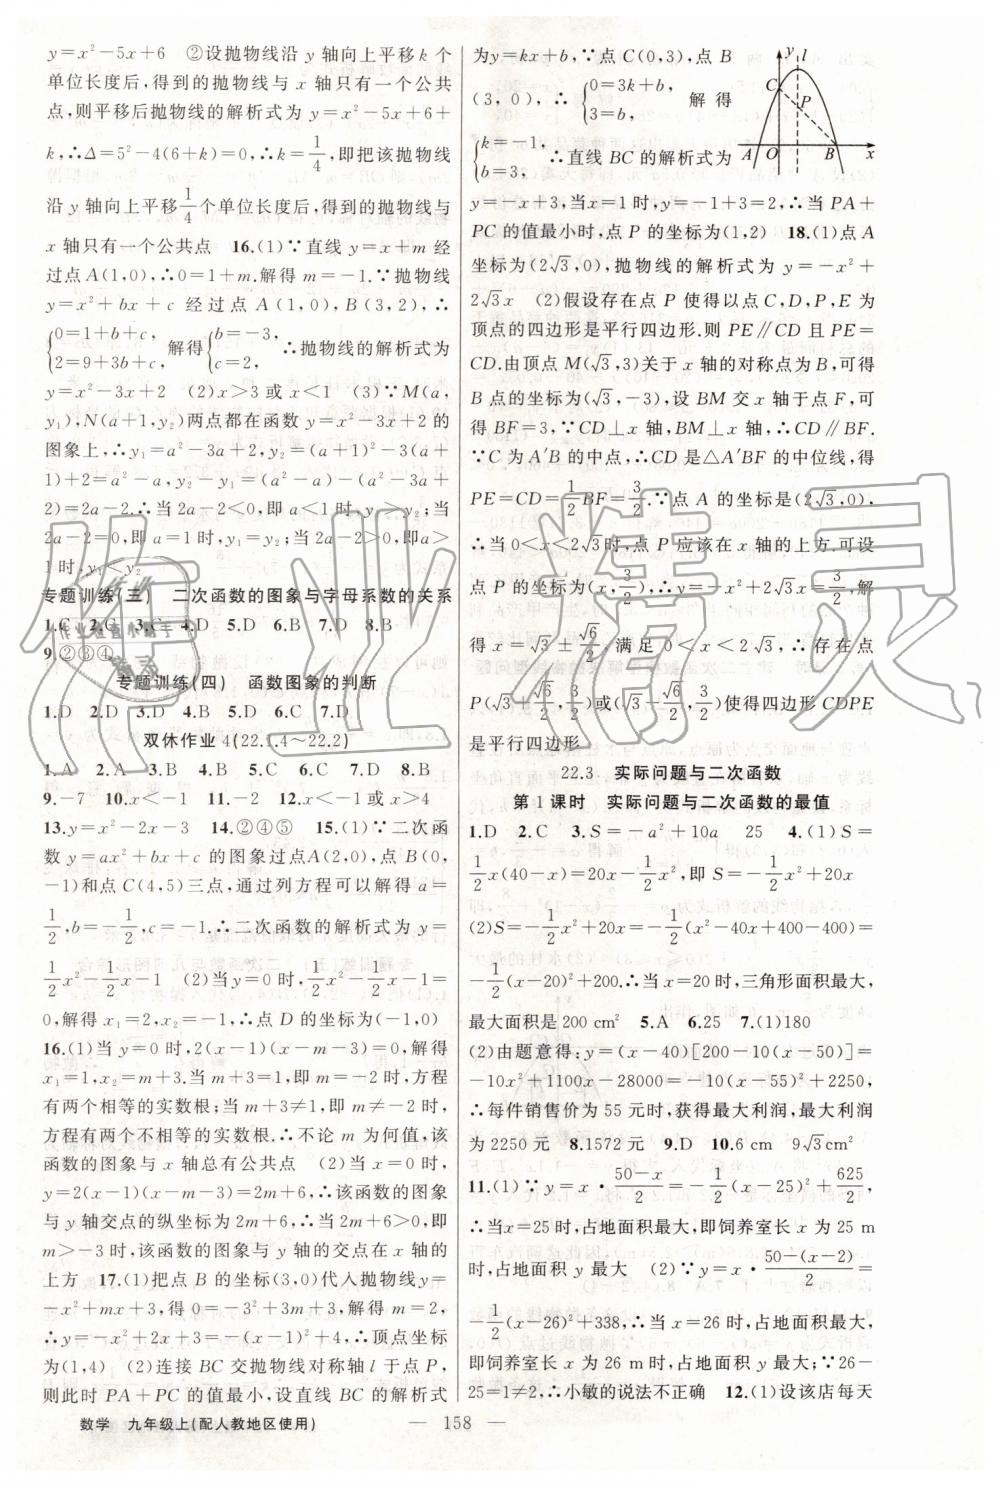 y=x²-5x+6 ②设抛物线沿 y 轴向上平移 k 个
单位长度后,得到的抛物线与 x 轴只有一个公共
点,则平移后抛物线的解析式为 y=x²-5x+6+
k,∴Δ=5²-4(6+k)=0,∴k=1/4,即把该抛物线
沿 y 轴向上平移1/4个单位长度后,得到的抛物线与
x 轴只有一个公共点 16.(1)∵直线 y=x+m 经
过点A(1,0),∴0=1+m.解得 m=-1.∵抛物线
y=x²+bx+c 经过点 A(1,0),B(3,2),∴
{0=1+b+c, 2=9+3b+c, 解得{b=-3, c=2, ∴抛物线的解析式为
y=x²-3x+2 (2)x>3或 x<1 (3)∵M(a,
y₁),N(a+1,y₂)两点都在函数 y=x²-3x+2 的
图象上,∴y₁=a²-3a+2,y₂=(a+1)²-3(a+
1)+2=a²-a,y₂-y₁=(a²-a)-(a²-3a+2)
=2a-2.∴当 2a-2<0,即 a<1 时,y₁>y₂;当
2a-2=0,即 a=1 时,y₁=y₂;当 2a-2>0,即a>
1时,y₁<y₂
专题训练(三) 二次函数的图象与字母系数的关系
1.C 2.C 3.C 4.D 5.D 6.D 7.D 8.B
9.②③④
专题训练(四) 函数图象的判断
1.D 2.D 3.D 4.B 5.D 6.C 7.D
双休作业 4(22.1.4～22.2)
1.A 2.A 3.B 4.B 5.C 6.B 7.C 8.B
9.-7 10.x<-1 11.-2 12.x<-1或 x>4
13.y=x²-2x-3 14.②④⑤ 15.(1)∵二次函
数 y=ax²+bx+c 的图象过点A(2,0),点 B(0,
-1)和点 C(4,5)三点,通过列方程可以解得 a=
1/2,b=-1/2,c=-1.∴二次函数的解析式为 y=
1/2x²-1/2x-1 (2)当 y=0 时,1/2x²-1/2x-1=
0.解得 x₁=2,x₂=-1,∴点 D 的坐标为(-1,0)
16.(1)当 y=0 时,2(x-1)(x-m-3)=0,解得
x₁=1,x₂=m+3.当 m+3=1,即 m=-2 时,方程
有两个相等的实数根;当 m+3≠1,即 m≠-2 时,
方程有两个不相等的实数根.∴不论 m 为何值,该
函数的图象与 x 轴总有公共点 (2)当 x=0 时,
y=2(x-1)(x-m-3)=2m+6,∴该函数的图象
与 y 轴交点的纵坐标为 2m+6,∴当 2m+6>0,即
m>-3 时,该函数的图象与 y 轴的交点在 x 轴的
上方 17.(1)把点 B 的坐标(3,0)代入抛物线y=
-x²+mx+3,得 0=-3²+3m+3,解得 m=2,
∴y=-x²+2x+3=-(x-1)²+4,∴顶点坐标
为(1,4) (2)连接 BC 交抛物线对称轴 l 于点 P,
则此时 PA+PC 的值最小,设直线 BC 的解析式
为y=kx+b,∵点 C(0,3),点 B
(3,0),∴{0=3k+b, 3=b, 解得
{k=-1, b=3, ∴直线 BC 的解析式为
y l C P A O B x
y=-x+3,当 x=1 时,y=-1+3=2,∴当 PA+
PC 的值最小时,点 P 的坐标为(1,2) 18.(1)点 A
坐标为(2√3,0),抛物线的解析式为 y=-x²+
2√3x (2)假设存在点 P 使得以点 C,D,P,E 为
顶点的四边形是平行四边形.则 PE∥CD 且 PE=
CD.由顶点 M(√3,3)关于 x 轴的对称点为 B,可得
B 点的坐标为(√3,-3),设 BM 交 x 轴于点 F,可
得 BF=3,∵CD⊥x 轴,BM⊥x 轴,∴CD∥BF.
∵C 为 A′B 的中点,∴CD 是△A′BF 的中位线,得
PE=CD=1/2BF=3/2.∵点 A 的坐标是(2√3,0),
∴当 0<x<2√3时,点 P 应该在 x 轴的上方.可设
点 P 的坐标为(x,3/2),∴y=-x²+2√3x=3/2,解
得 x=√3±√6/2,满足 0<x<2√3,∴存在点
P(√3+√6/2,3/2)或(√3-√6/2,3/2)使得四边形 CDPE
是平行四边形
22.3 实际问题与二次函数
第 1 课时 实际问题与二次函数的最值
1.D 2.C 3.S=-a²+10a 25 4.(1)S=
1/2x(40-x)=20x-1/2x²,即 S=-1/2x²+20x
(2)S=-1/2x²+20x=-1/2(x²-40x+400-400)=
-1/2(x-20)²+200,∴当 x=20 时,三角形面积最大,
最大面积是 200 cm² 5.A 6.25 7.(1)180
(2)由题意得:y=(x-40)[200-10(x-50)]=
-10x²+1100x-28000=-10(x-55)²+2250,
∴每件销售价为 55 元时,获得最大利润,最大利润
为 2250 元 8.1572 元 9.D 10.6 cm 9√3cm²
11.(1)∵y=x·(50-x)/2=-1/2(x-25)²+625/2,
∴当x=25 时,占地面积最大,即饲养室长 x 为 25 m
时,占地面积 y 最大 (2)∵y=x·(50-(x-2))/2=
-1/2(x-26)²+338,∴当 x=26 时,占地面积最大,
即饲养室长 x 为 26 m 时,占地面积 y 最大.∵26-
25=1≠2,∴小敏的说法不正确 12.(1)设该店每天
数学 九年级上(配人教地区使用) — 158 —
作业精灵